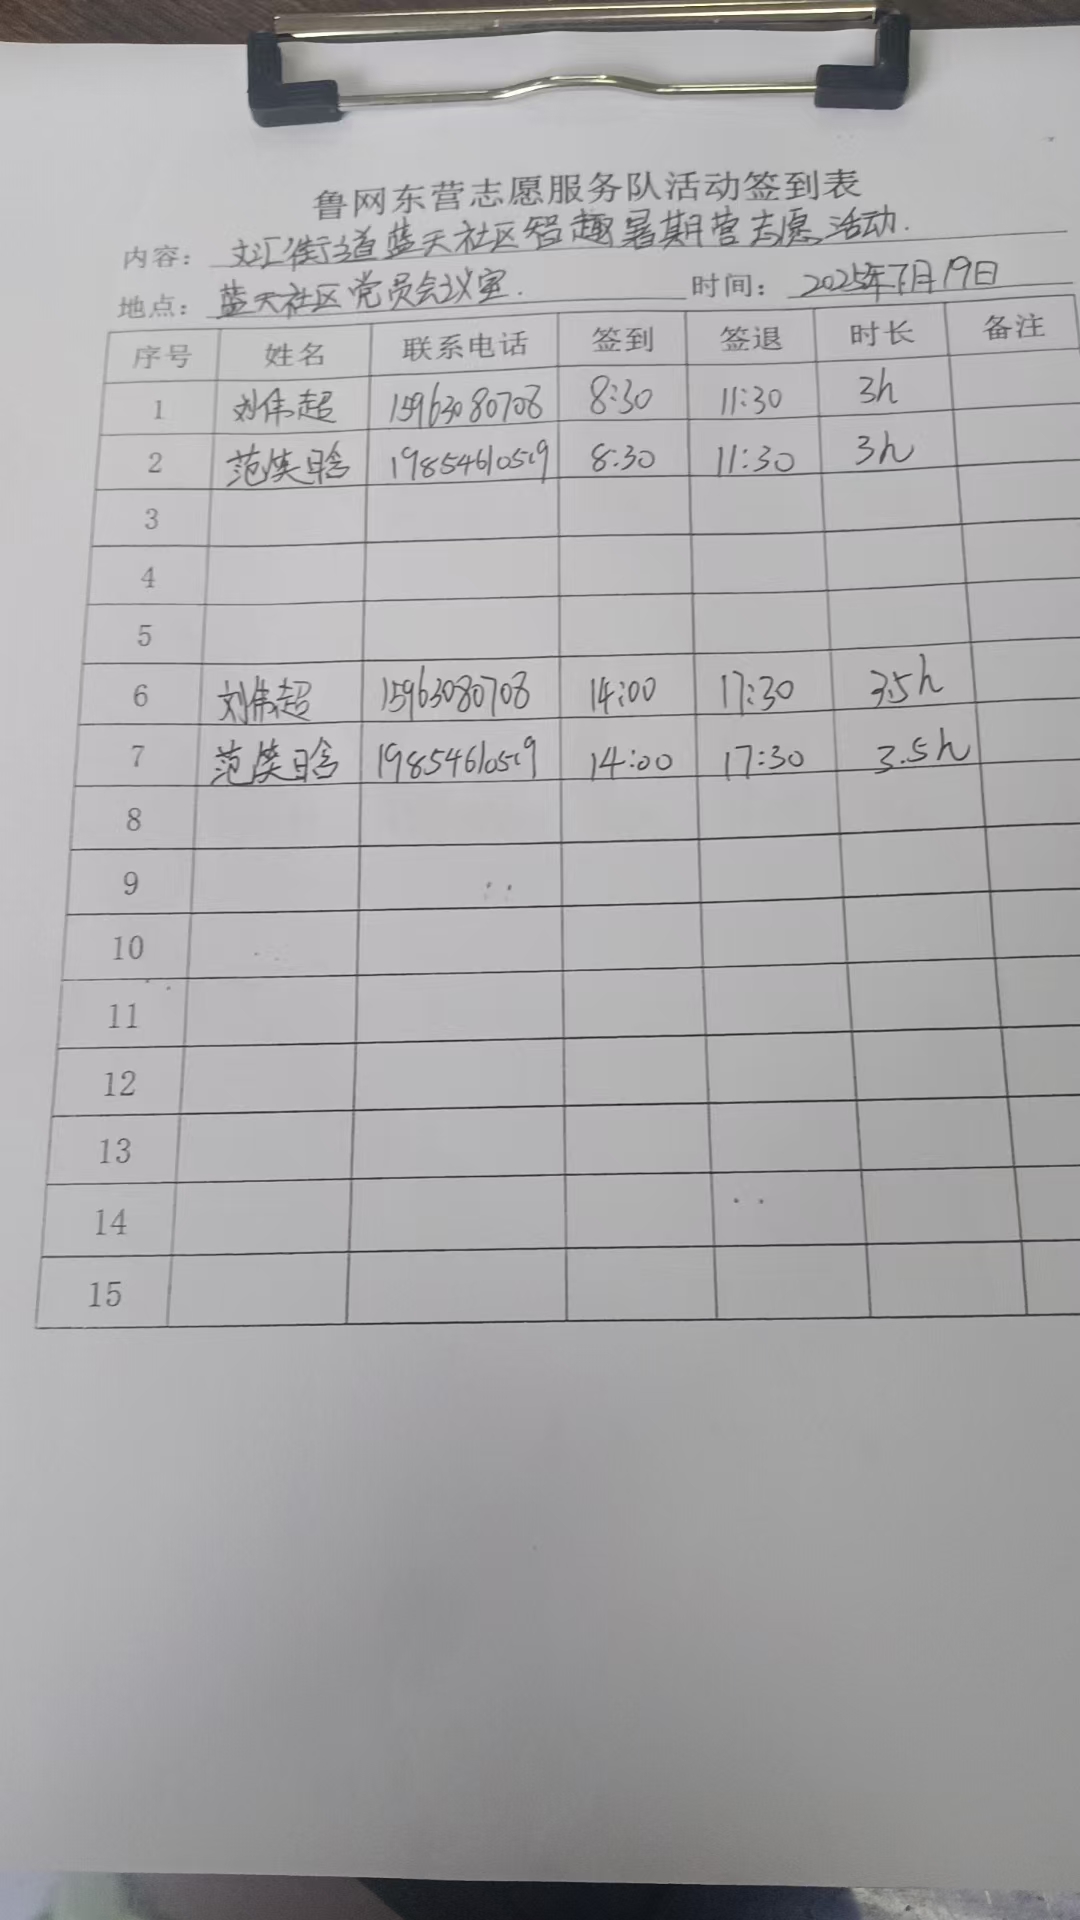 鲁网东营志愿服务队活动签到表
内容：文汇街道蓝天社区智趣暑期营志愿活动.
地点：蓝天社区党员会议室. 时间：2025年7月19日
序号 姓名 联系电话 签到 签退 时长 备注
1 刘伟超 15963080708 8:30 11:30 3h
2 范笑晗 19854610519 8:30 11:30 3h
3
4
5
6 刘伟超 15963080708 14:00 17:30 3.5h
7 范笑晗 19854610519 14:00 17:30 3.5h
8
9
10
11
12
13
14
15